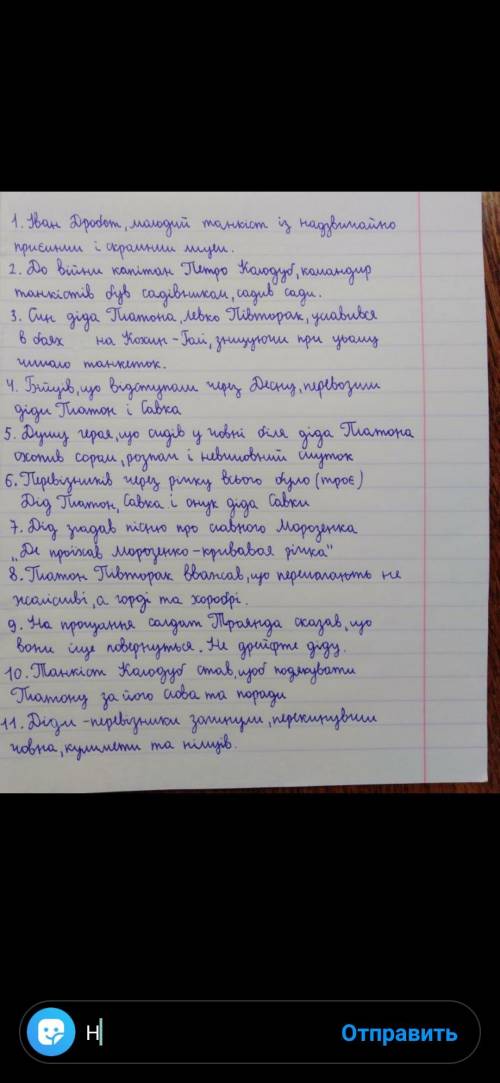 1. Іван Дробот, молодий танкіст із надзвичайно
приємним і скромним лицем.
2. До війни капітан Петро Колодуб, командир
танкістів був садівником, садив сади.
3. Син діда Платона, Левко Півторак, уславився
в боях на Кохин-Голі, знищуючи при цьому
чимало танкеток.
4. Бійців, що відступали через Десну, перевозили
діди Платон і Савка
5. Душу героя, що сидів у човні біля діда Платона
охопив сором, розпач і невимовний смуток
6. Перевізників через річку всього було (троє)
Дід Платон, Савка і онук діда Савки
7. Дід згадав пісню про славного Морозенка
„Де проїхав Морозенко-кривавая річка"
8. Платон Півторак вважав, що перемагають не
жалісливі, а горді та хоробрі.
9. На прощання солдат Троянда сказав, що
вони іще повернуться. Не дрейфте діду.
10. Танкіст Колодуб став, щоб подякувати
Платону за його слова та поради
11. Діди-перевізники загинули, перекинувши
човна, кулемети та німців.
Н
Отправить